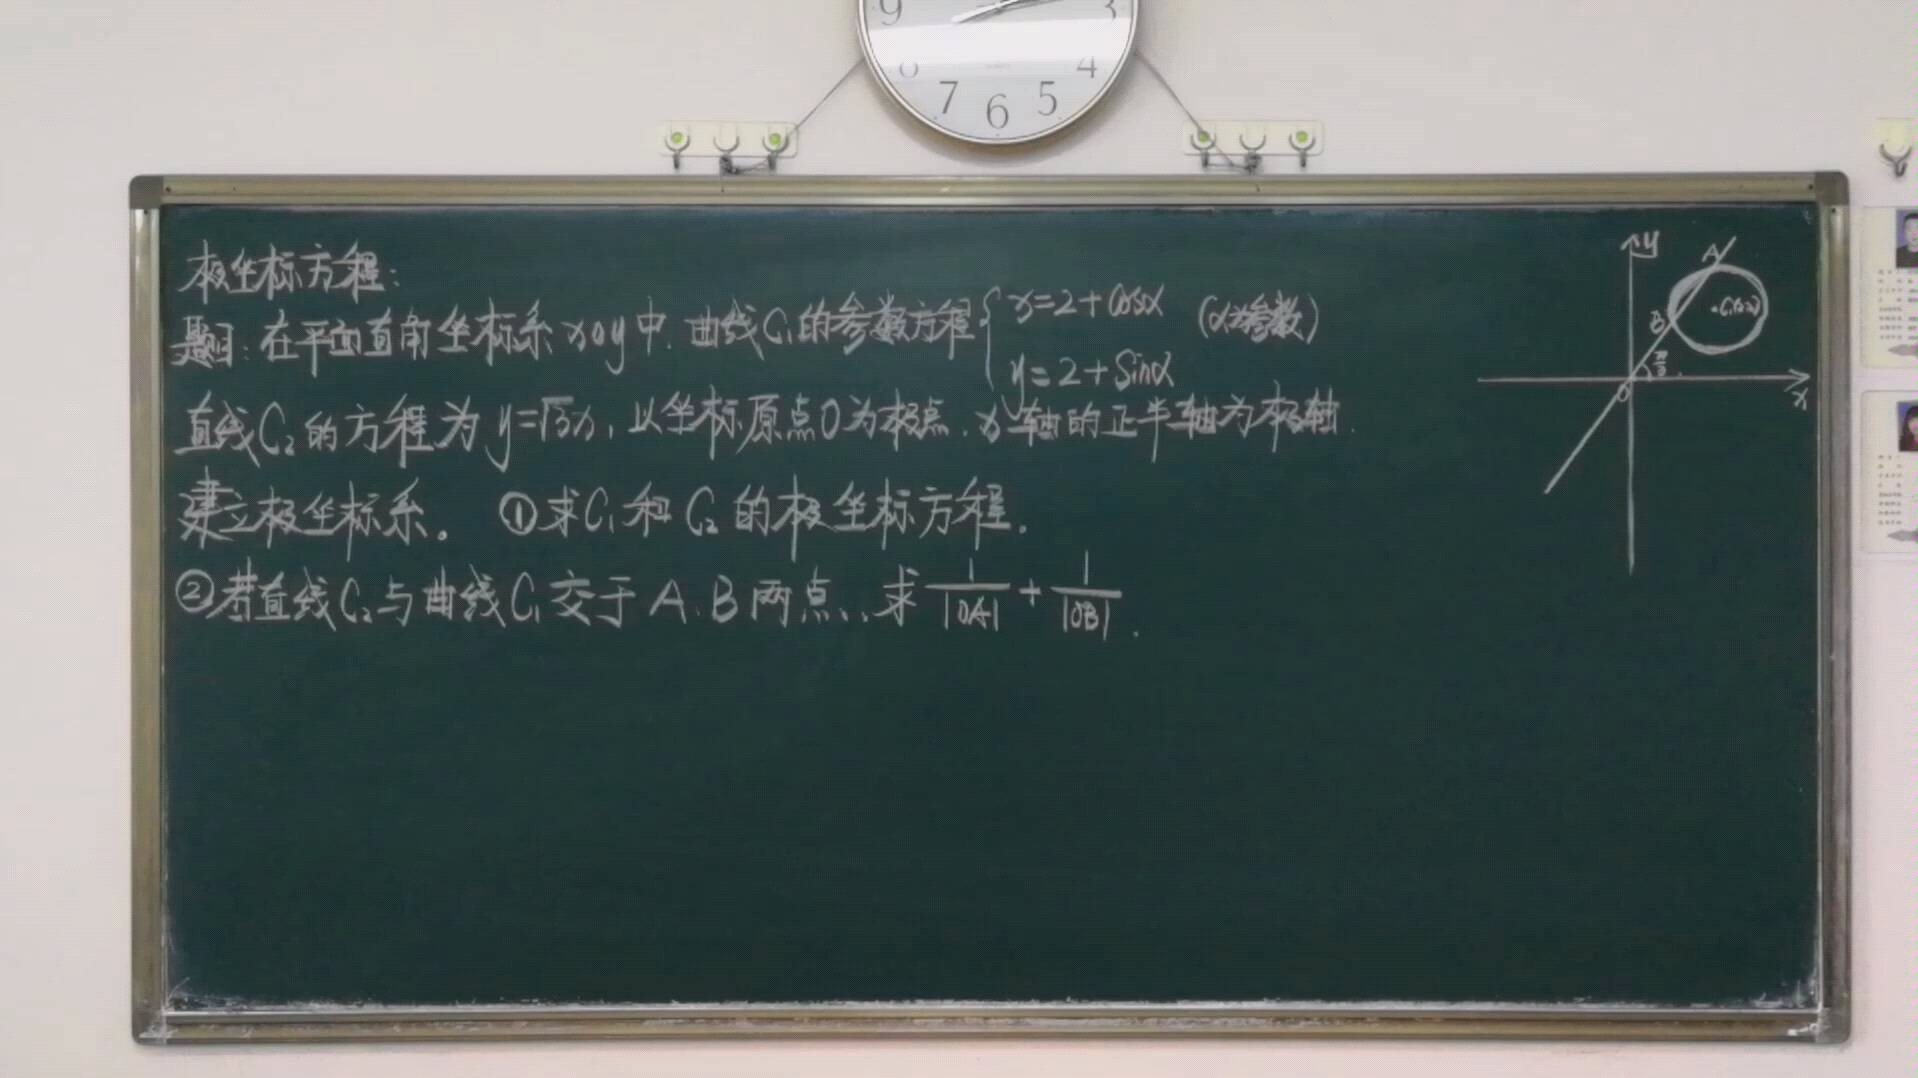 9 3
8 4
7 6 5
极坐标方程:
题目:在平面直角坐标系xoy中.曲线C₁的参数方程{x=2+cosα (α为参数)
y=2+sinα
直线C₂的方程为y=√3x,以坐标原点O为极点.x轴的正半轴为极轴.
建立极坐标系。 ①求C₁和C₂的极坐标方程.
②若直线C₂与曲线C₁交于A.B两点,.求 1/|OA| + 1/|OB| .
y
A
B
π/3
O
x